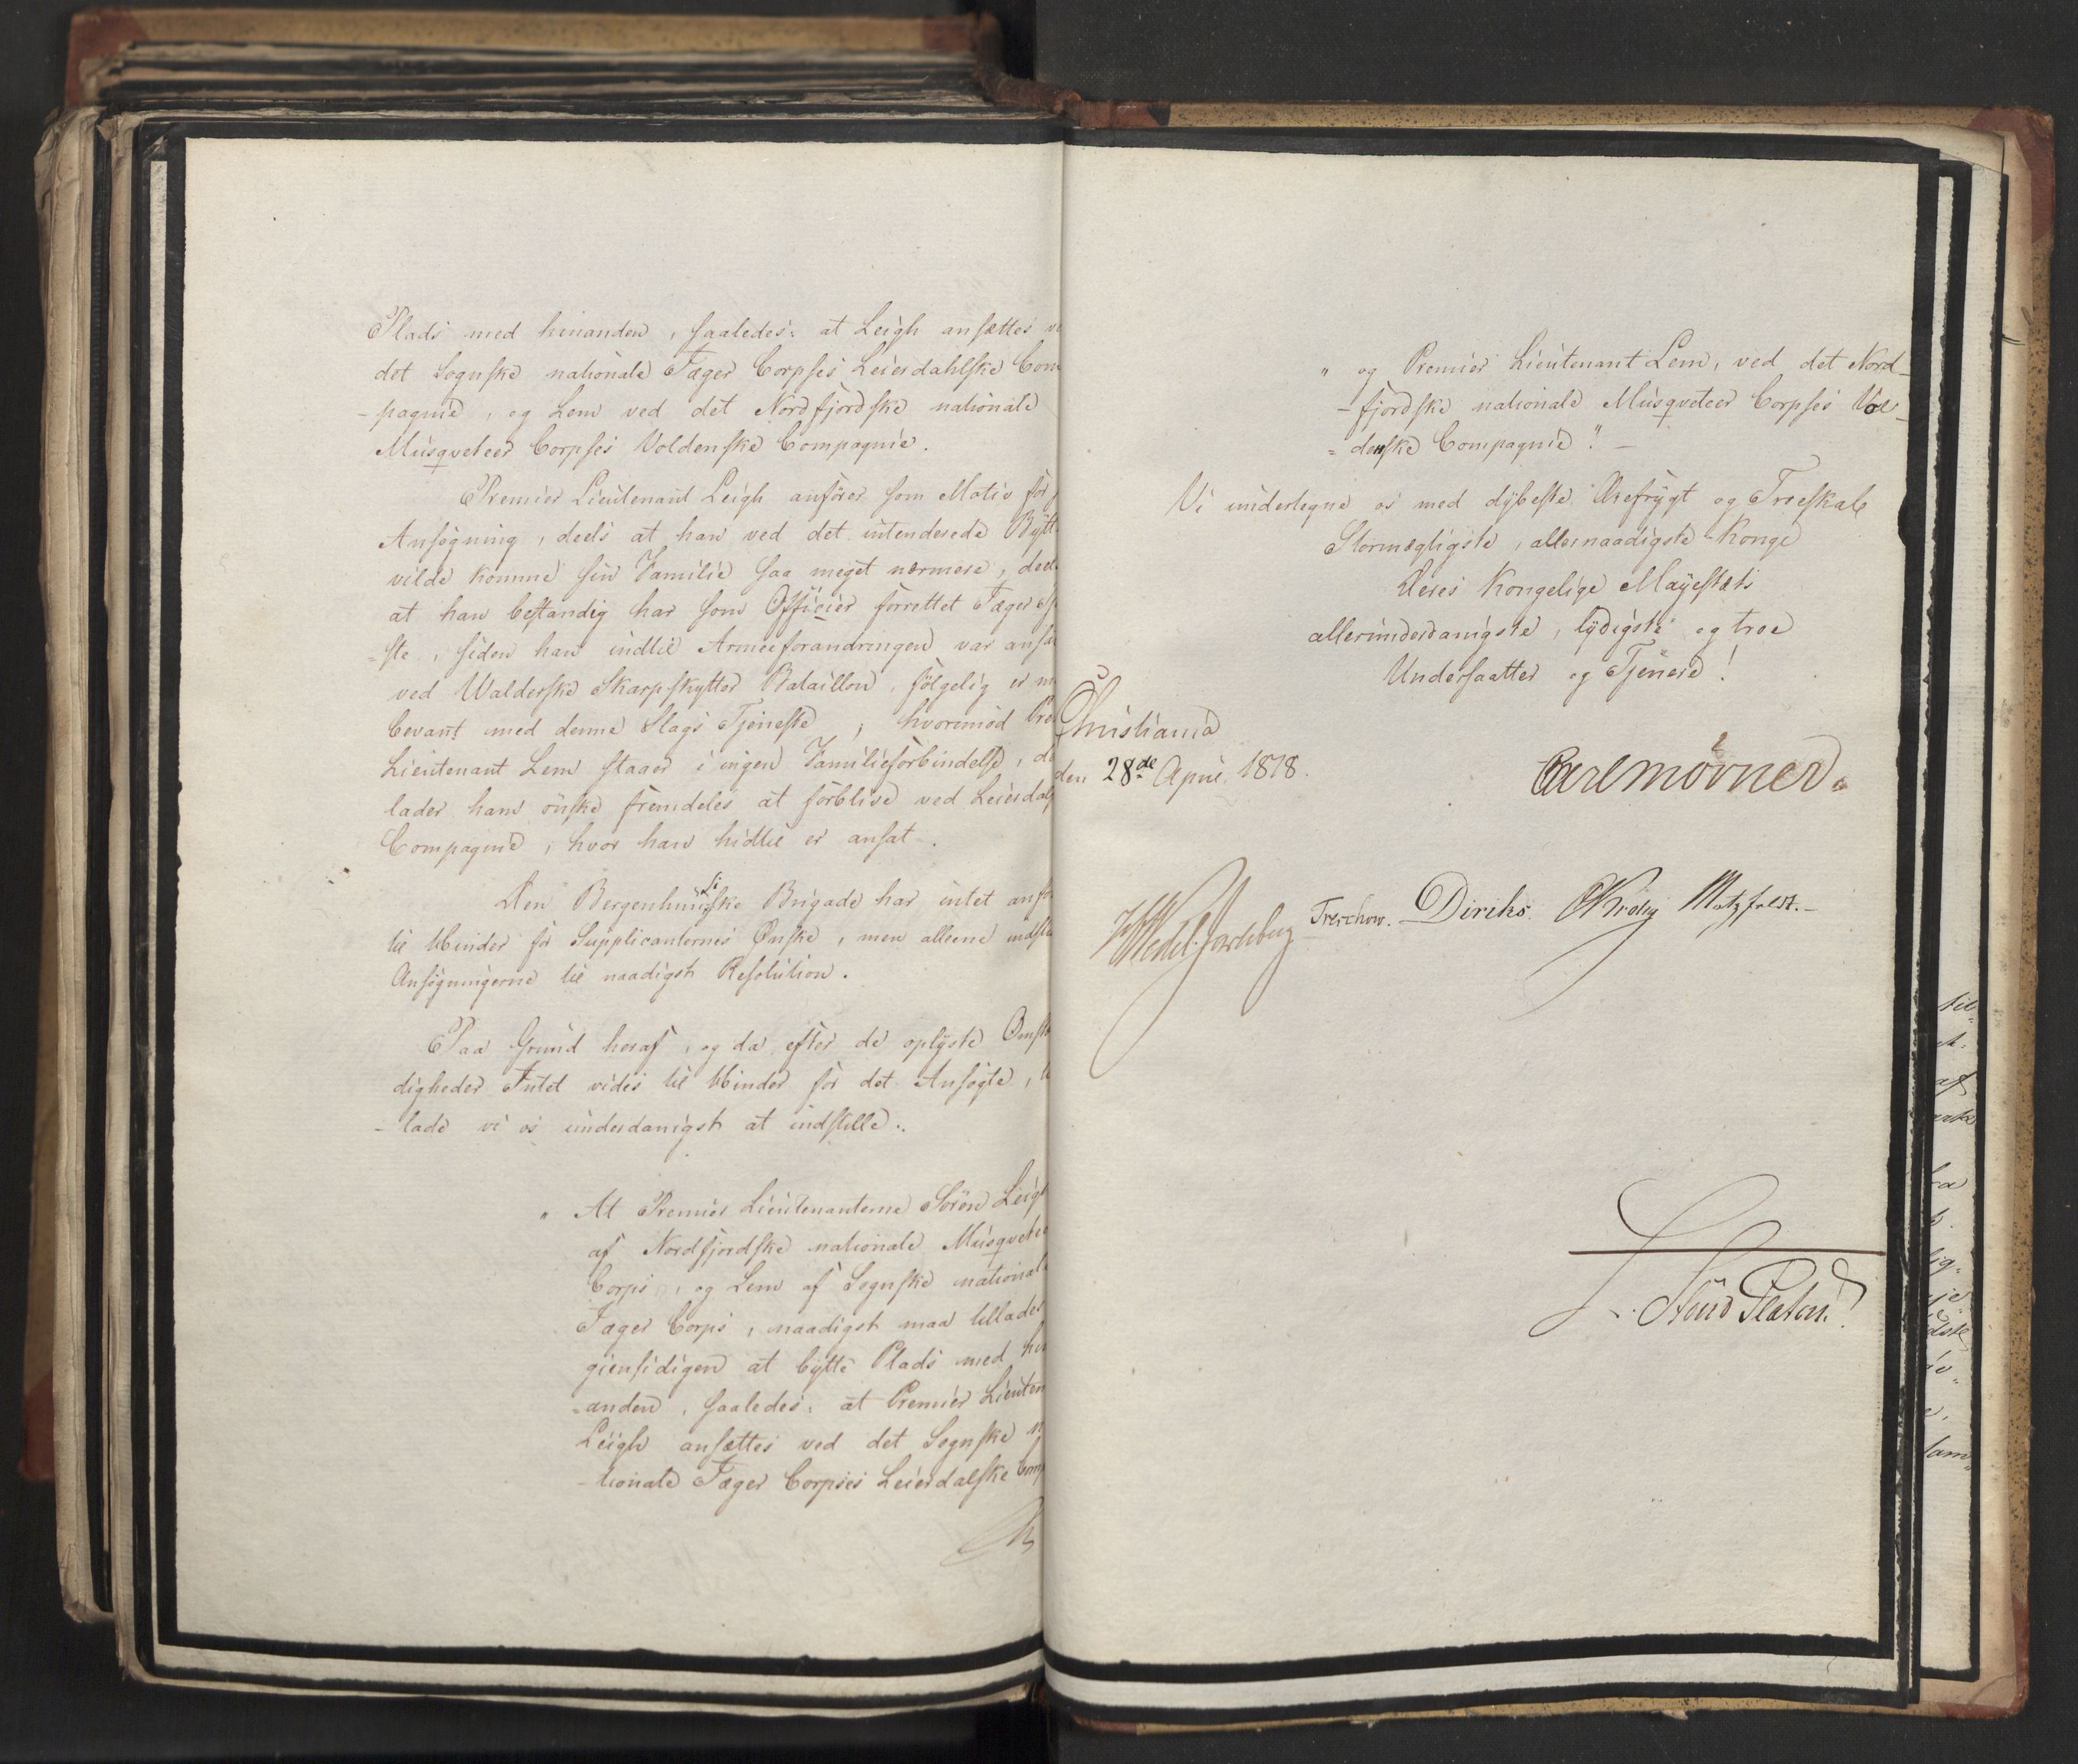 Plads med hinanden, saaledes: at Leigh ansættes
det Sognske nationale Jæger Corpses Leierdahlske Com
-pagnie, og Lem ved det Nordfjordske nationale
Musqveteer Corpses Voldenske Compagnie.
Premier Lieutenant Leigh anfører som Motiv for
Ansøgning, deels at han ved det intenderede Bytt
vilde komme sin Familie saa meget nærmere, deel
at han bestandig har som Officier forrettet Jæger
-ste, siden han indtil Armeeforandringen var ansa
ved Walderske Skarpskytter Bataillon, følgelig er
bevant med denne Slags Tjeneste; hvorimod Pre
Lieutenant Lem staaer i ingen Familieforbindelse, de
lader ham ønske fremdeles at forblive ved Leierdal
Compagnie, hvor han hidtil er ansat.
Den Bergenhuusiske Brigade har intet anf
til Hinder for Supplicanternes Ønske, men alleene indstil
Ansøgningerne til naadigst Resolution.
Paa Grund heraf, og da efter de oplyste Omst
digheder Intet vides til Hinder for det Ansøgte,
-lade vi os underdanigst at indstille:
" At Premier Lieutenanterne Sören Leigh
af Nordfjordske nationale Musqvetee
Corps, og Lem af Sognske national
Jæger Corps, naadigst maa tillades
giensidigen at bytte Plads med hin
-anden, saaledes: at Premier Lieuten
Leigh ansættes ved det Sognske n
-tionale Jæger Corpses Leierdalske Comp
" og Premier Lieutenant Lem, ved det Nord-
-fjordske nationale Musqveteer Corpses Vol-
=denske Compagnie". -
Vi undertegne os med dybeste Ærefrygt og Troeskab
Stormægtigste, allernaadigste Konge
Deres Kongelige Mayestæts
allerunderdanigste, lydigste og troe
Undersaatter og Tjenere!
Christiania
den 28de April 1818.
Carl Mörner.
HWedel Jarlsberg Treschow. Diriks. Krohg Motzfeldt. -
von Platen.
til
af
sam=